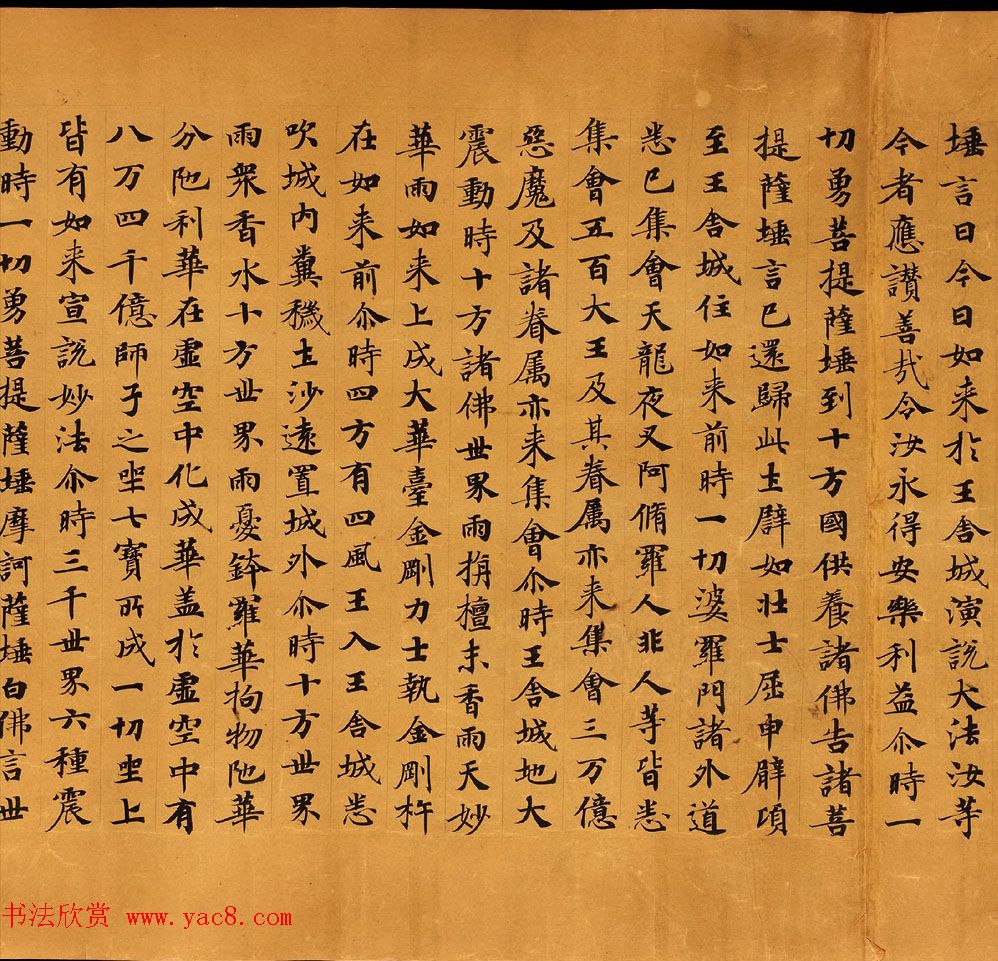 埵言曰今日如来於王舍城演說大法汝等
今者應讚善㢤令汝永得安樂利益尒時一
切勇菩提薩埵到十方國供養諸佛告諸菩
提薩埵言已還歸此土辟如壯士屈申臂項
至王舍城住如来前時一切婆羅門諸外道
悉已集會天龍夜叉阿脩羅人非人等皆悉
集會五百大王及其眷属亦来集會三万億
惡魔及諸眷属亦来集會尒時王舍城地大
震動時十方諸佛世界雨栴檀末香雨天妙
華雨如来上成大華臺金剛力士執金剛杵
在如来前尒時四方有四風王入王舍城悉
吹城内糞穢土沙遠置城外尒時十方世界
雨衆香水十方世界雨憂鉢羅華拘物陁華
分陁利華在虛空中化成華盖於虛空中有
八万四千億師子之坐七寶所成一切坐上
皆有如来宣說妙法尒時三千世界六種震
動時一切勇菩提薩埵摩訶薩埵白佛言世
书法欣赏 www.yac8.com